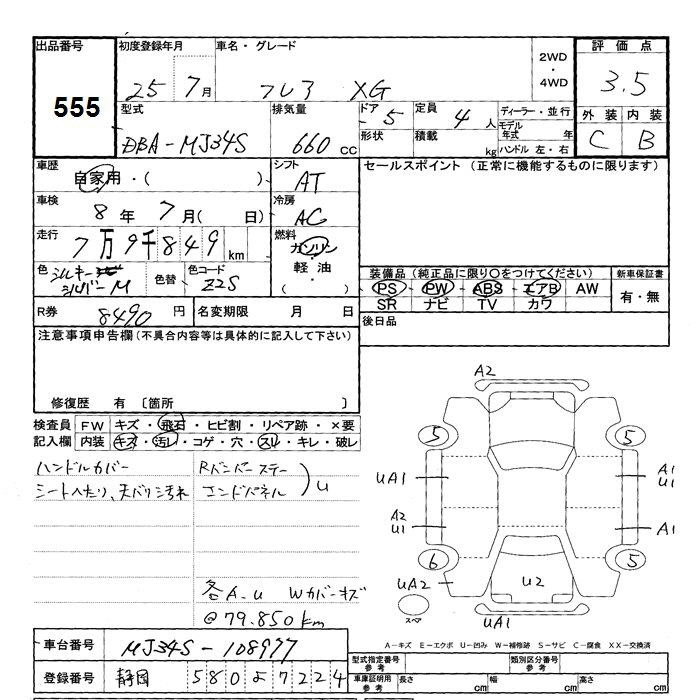 出品番号 初度登録年月 車名・グレード 評価点
555 25 7月 フレア XG 2WD・4WD 3.5
型式 排気量 ドア 5 定員 4人 ディーラー・並行 外装 内装
DBA-MJ34S 660cc 形状 積載 kg モデル年式 年 C B
ハンドル 左・右
車歴 シフト セールスポイント (正常に機能するものに限ります)
自家用・( )・ AT
車検 冷房
8年 7月( 日) AC
走行 燃料
7万9千849km ガソリン・軽油・
色 シルキーシルバーM 色替 色コード Z2S
装備品(純正品に限り○をつけてください) 新車保証書
PS・PW・ABS・エアB AW 有・無
SR ナビ TV カワ
R券 8490円 名変期限 月 日 後日品
注意事項申告欄(不具合内容等は具体的に記入して下さい)
修復歴 有 〔箇所 〕
検査員 FW キズ・飛石・ヒビ割・リペア跡・×要
記入欄 内装 キズ・汚レ・コゲ・穴・スレ・キレ・破レ
ハンドルカバー Rバンパーステー
シートヘたり、天バリ汚れ エンドパネル ) U
各A.U Wカバーキズ
@79.850km
A2
5 5
UA1 A1 U1
A2 U1 A1
6 5
UA2 U2
スペア UA1
A-キズ E-エクボ U-凹み W-補修跡 S-サビ C-腐食 XX-交換済
車台番号 MJ34S-108977
型式指定番号 参考 類別区分番号 参考
登録番号 静岡 580 ょ 7224
車庫証明用 参考 長さ cm 幅 cm 高さ cm